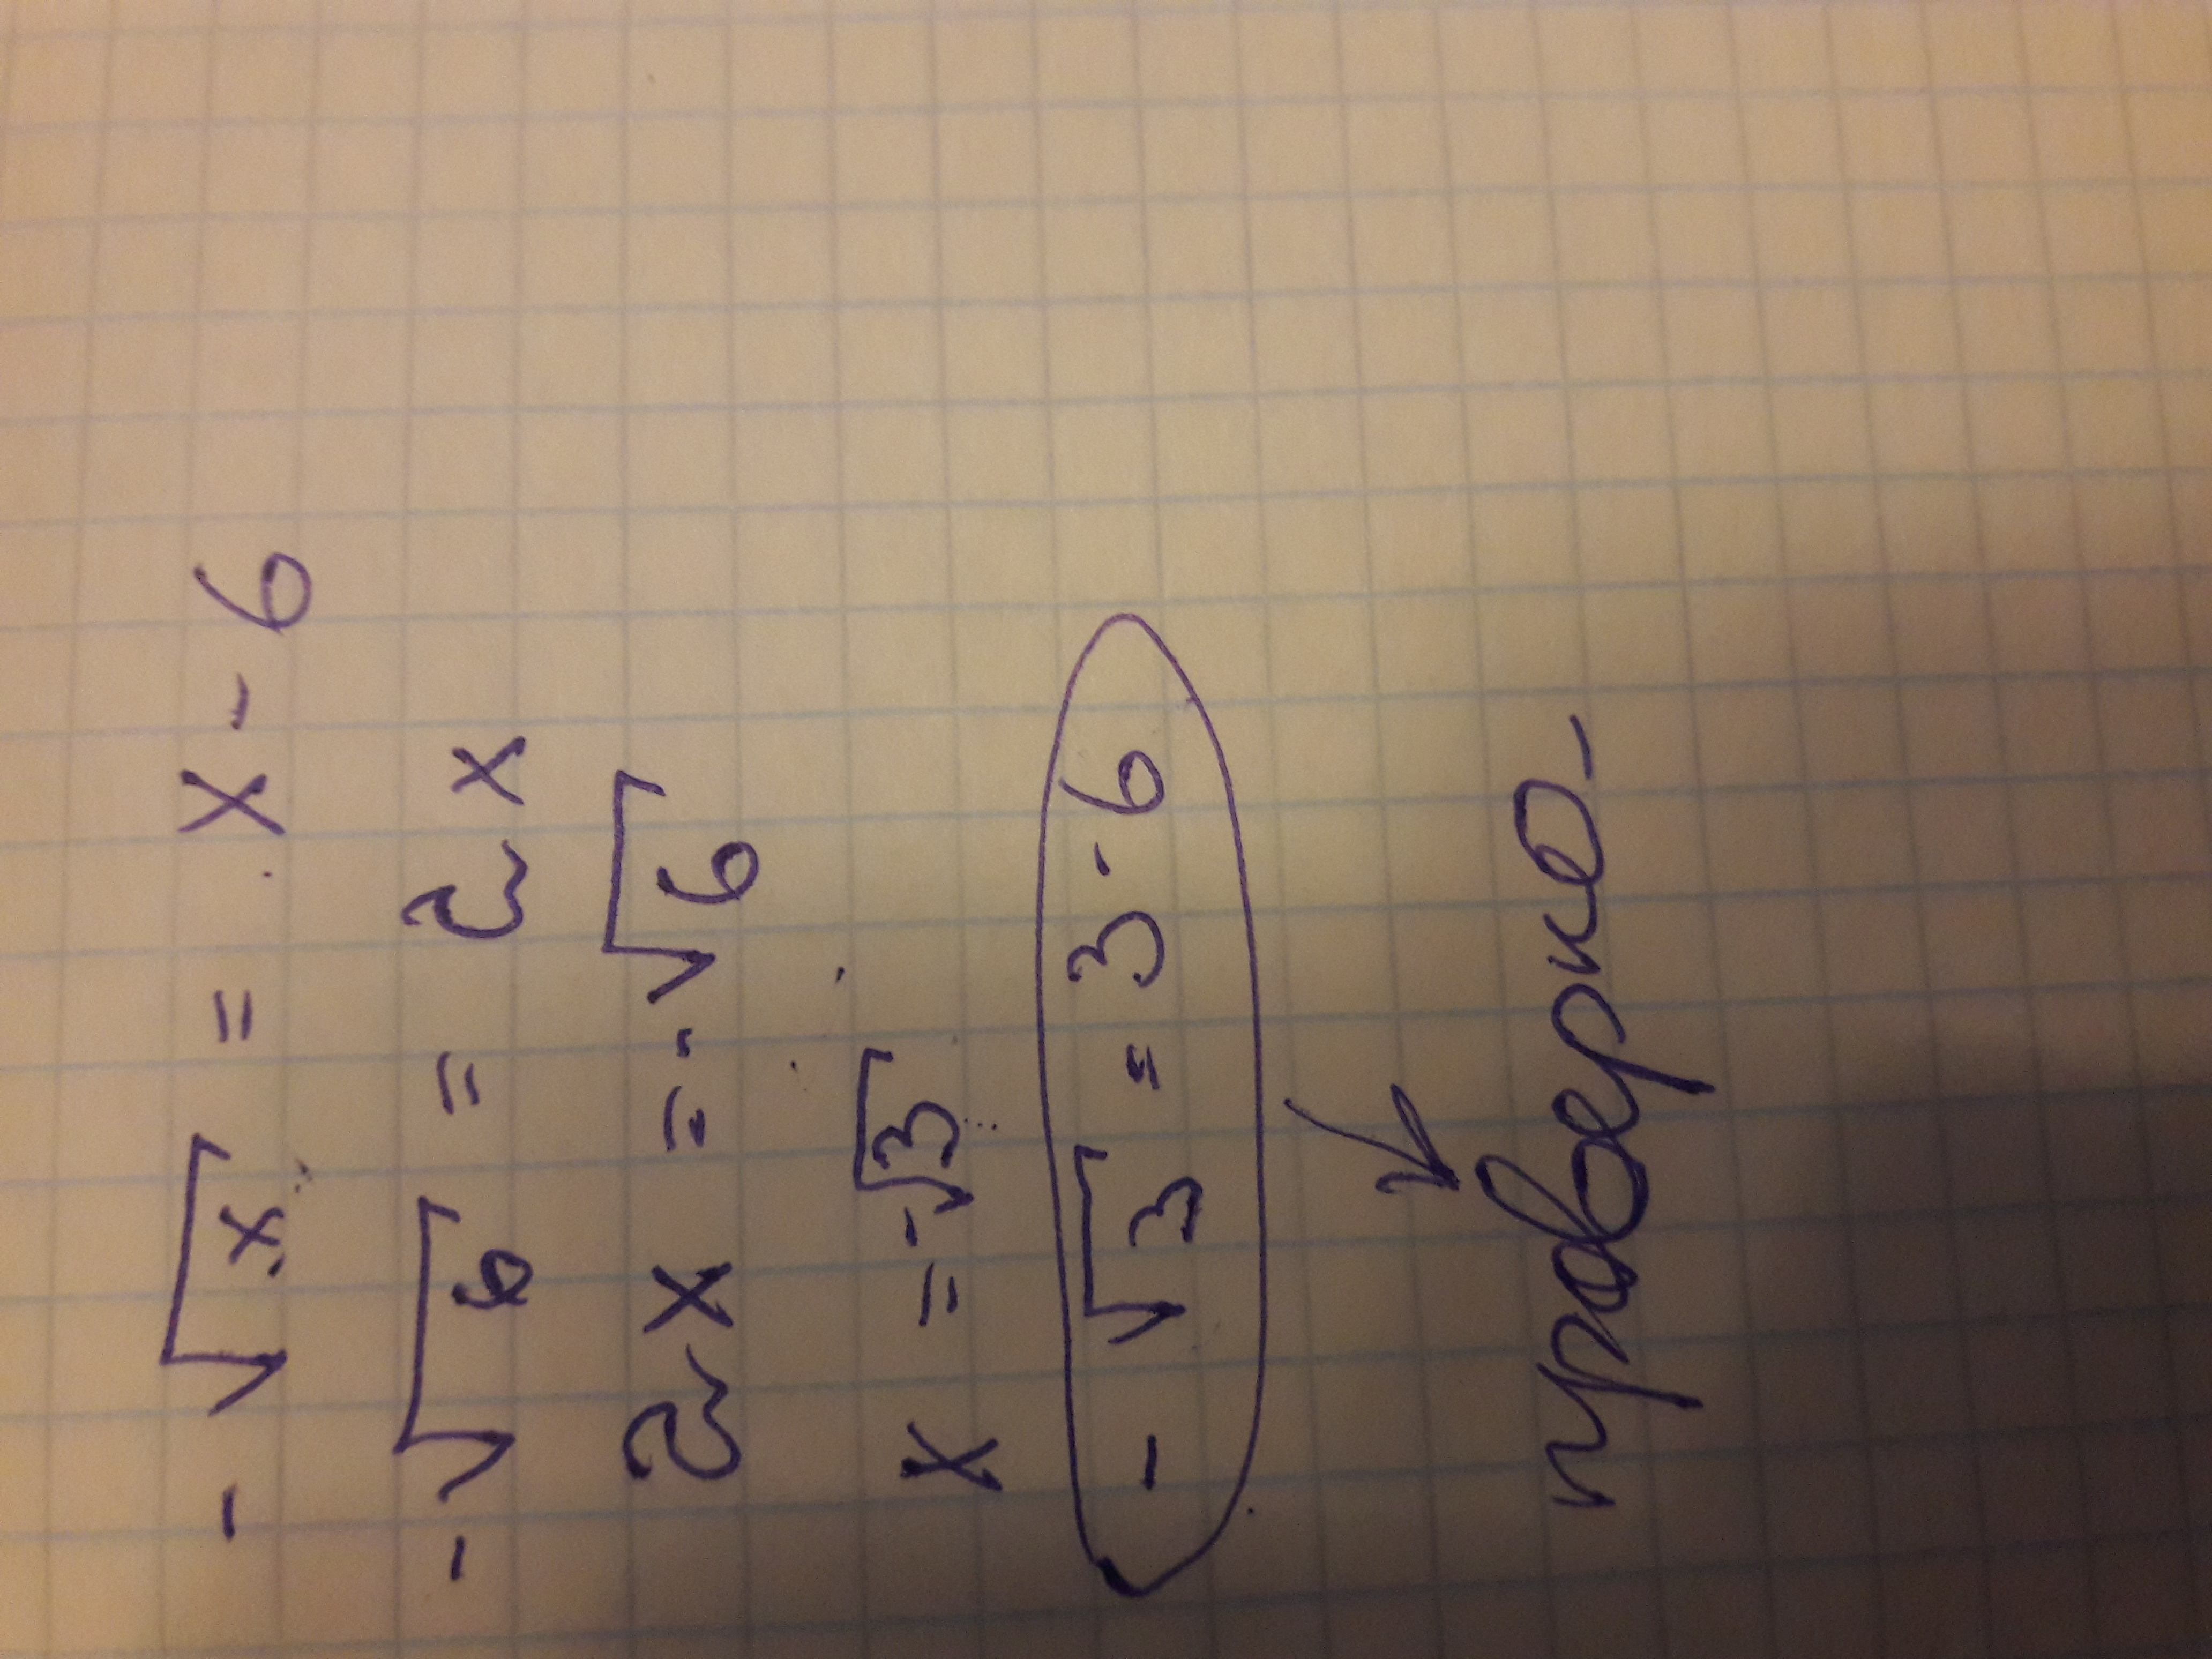 - √x = x - 6
- √6 = 2x
2x = -√6
x = -√3
- √3 = 3 - 6
проверка-